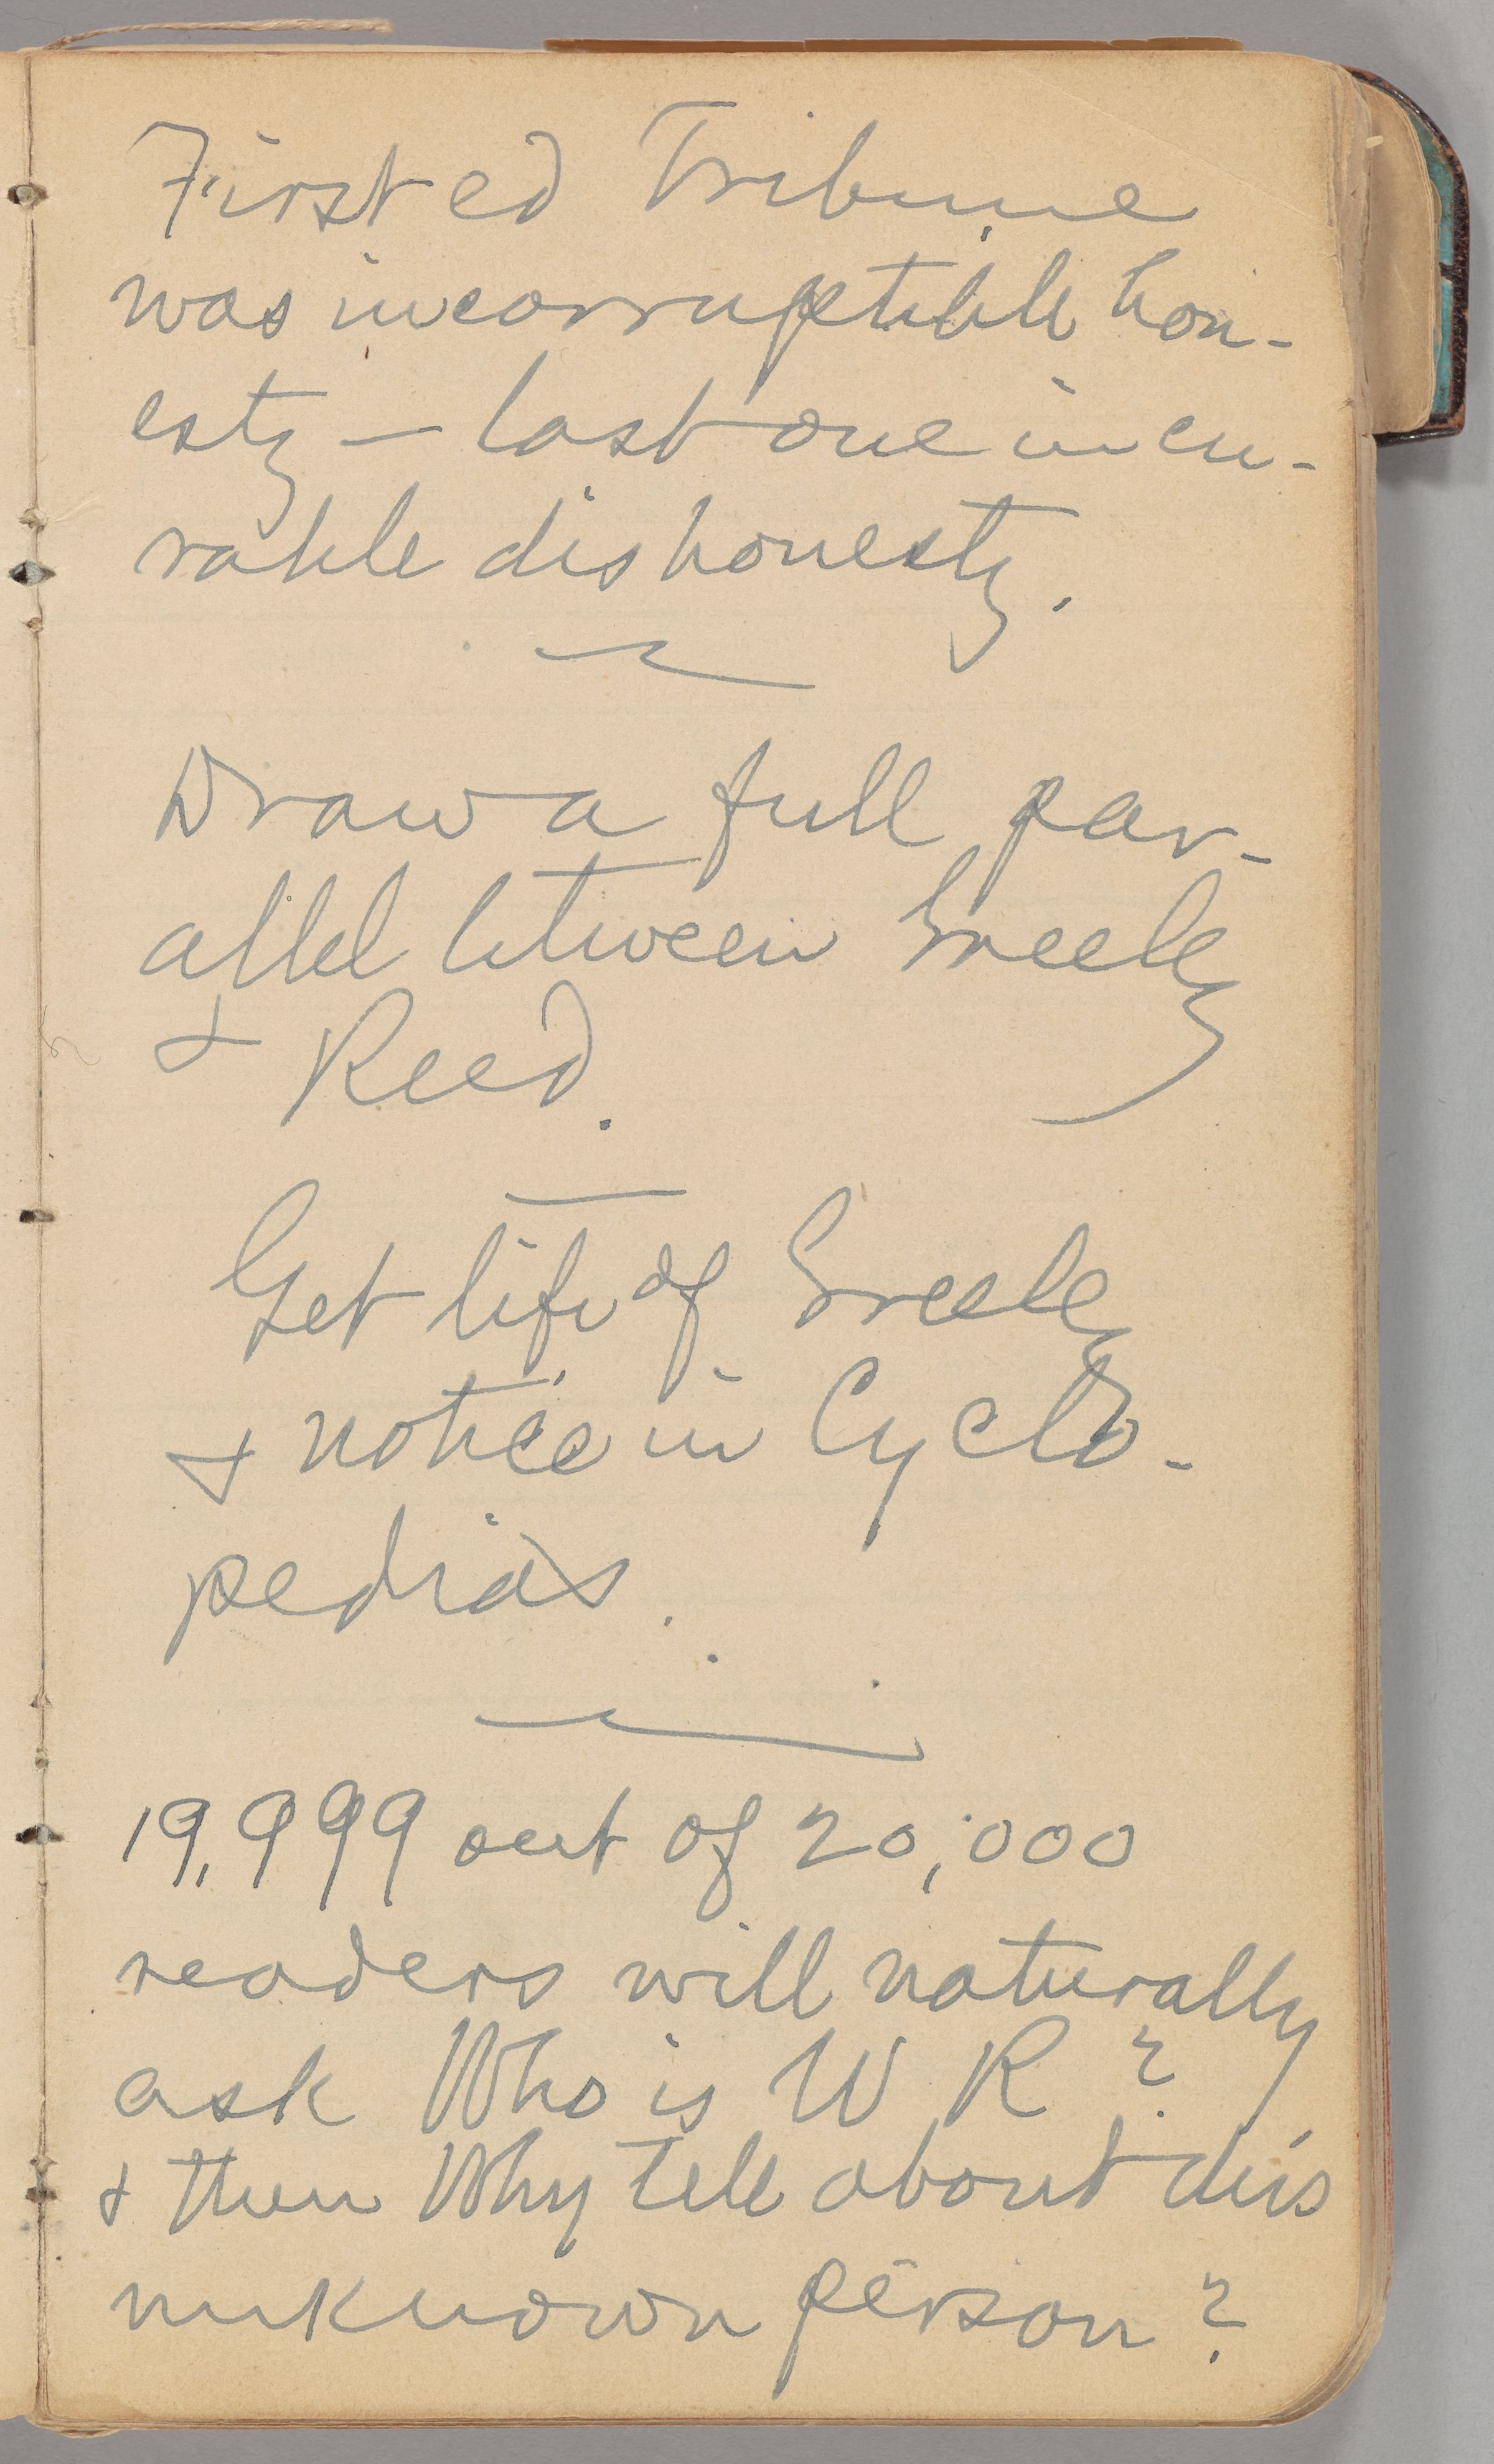 First ed Tribune
was incorruptible hon-
esty — last one incu-
rable dishonesty.
Draw a full par-
allel between Greeley
& Reed.
Get life of Greeley
& notice in Cyclo-
pedias.
19,999 out of 20,000
readers will naturally
ask Who is W R?
& then Why tell about this
unknown person?